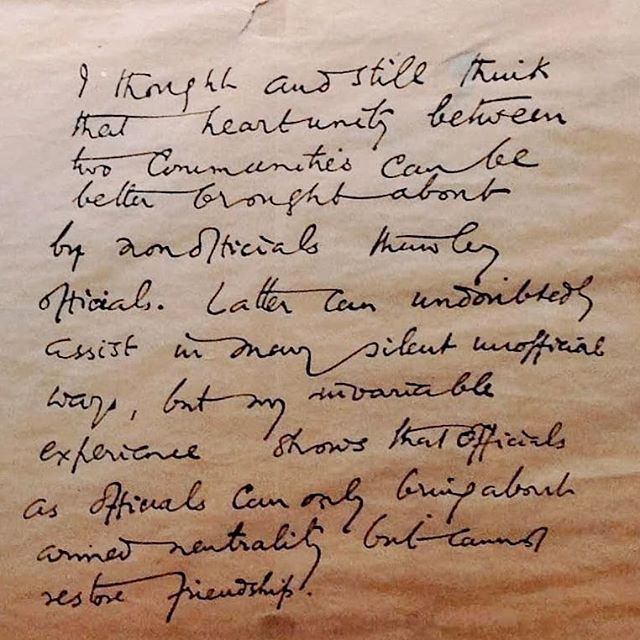 I thought and still think
that heart unity between
two Communities can be
better brought about
by nonofficials than by
officials. Latter can undoubtedly
assist in many silent unofficial
ways, but my invariable
experience shows that officials
as officials can only bring about
armed neutrality but cannot
restore friendship.